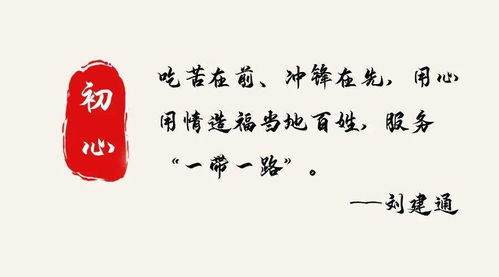 初
心
吃苦在前、冲锋在先，用心
用情造福当地百姓，服务
“一带一路”。
——刘建通